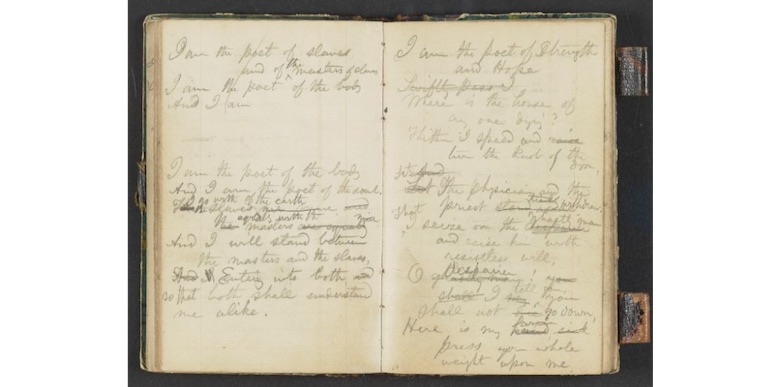 I am the poet of slaves
and of the masters of slaves
I am the poet of the body
And I am
I am the poet of the body
And I am the poet of the soul
I go with the slaves of the earth
equals with the
masters
And I will stand between
the masters and the slaves,
And I Entering into both and
so that both shall understand
me alike.
I am the poet of Strength
and Hope
Swiftly pass I
Where is the house of
any one dying?
Thither I speed and raise
turn the knob of the
door,
Let the physician and the
priest stand withdraw,
That I seize on the
and raise him with
resistless will;
O despairer! you
shall I tell you
shall not go down,
Here is my hand
press your whole
weight upon me